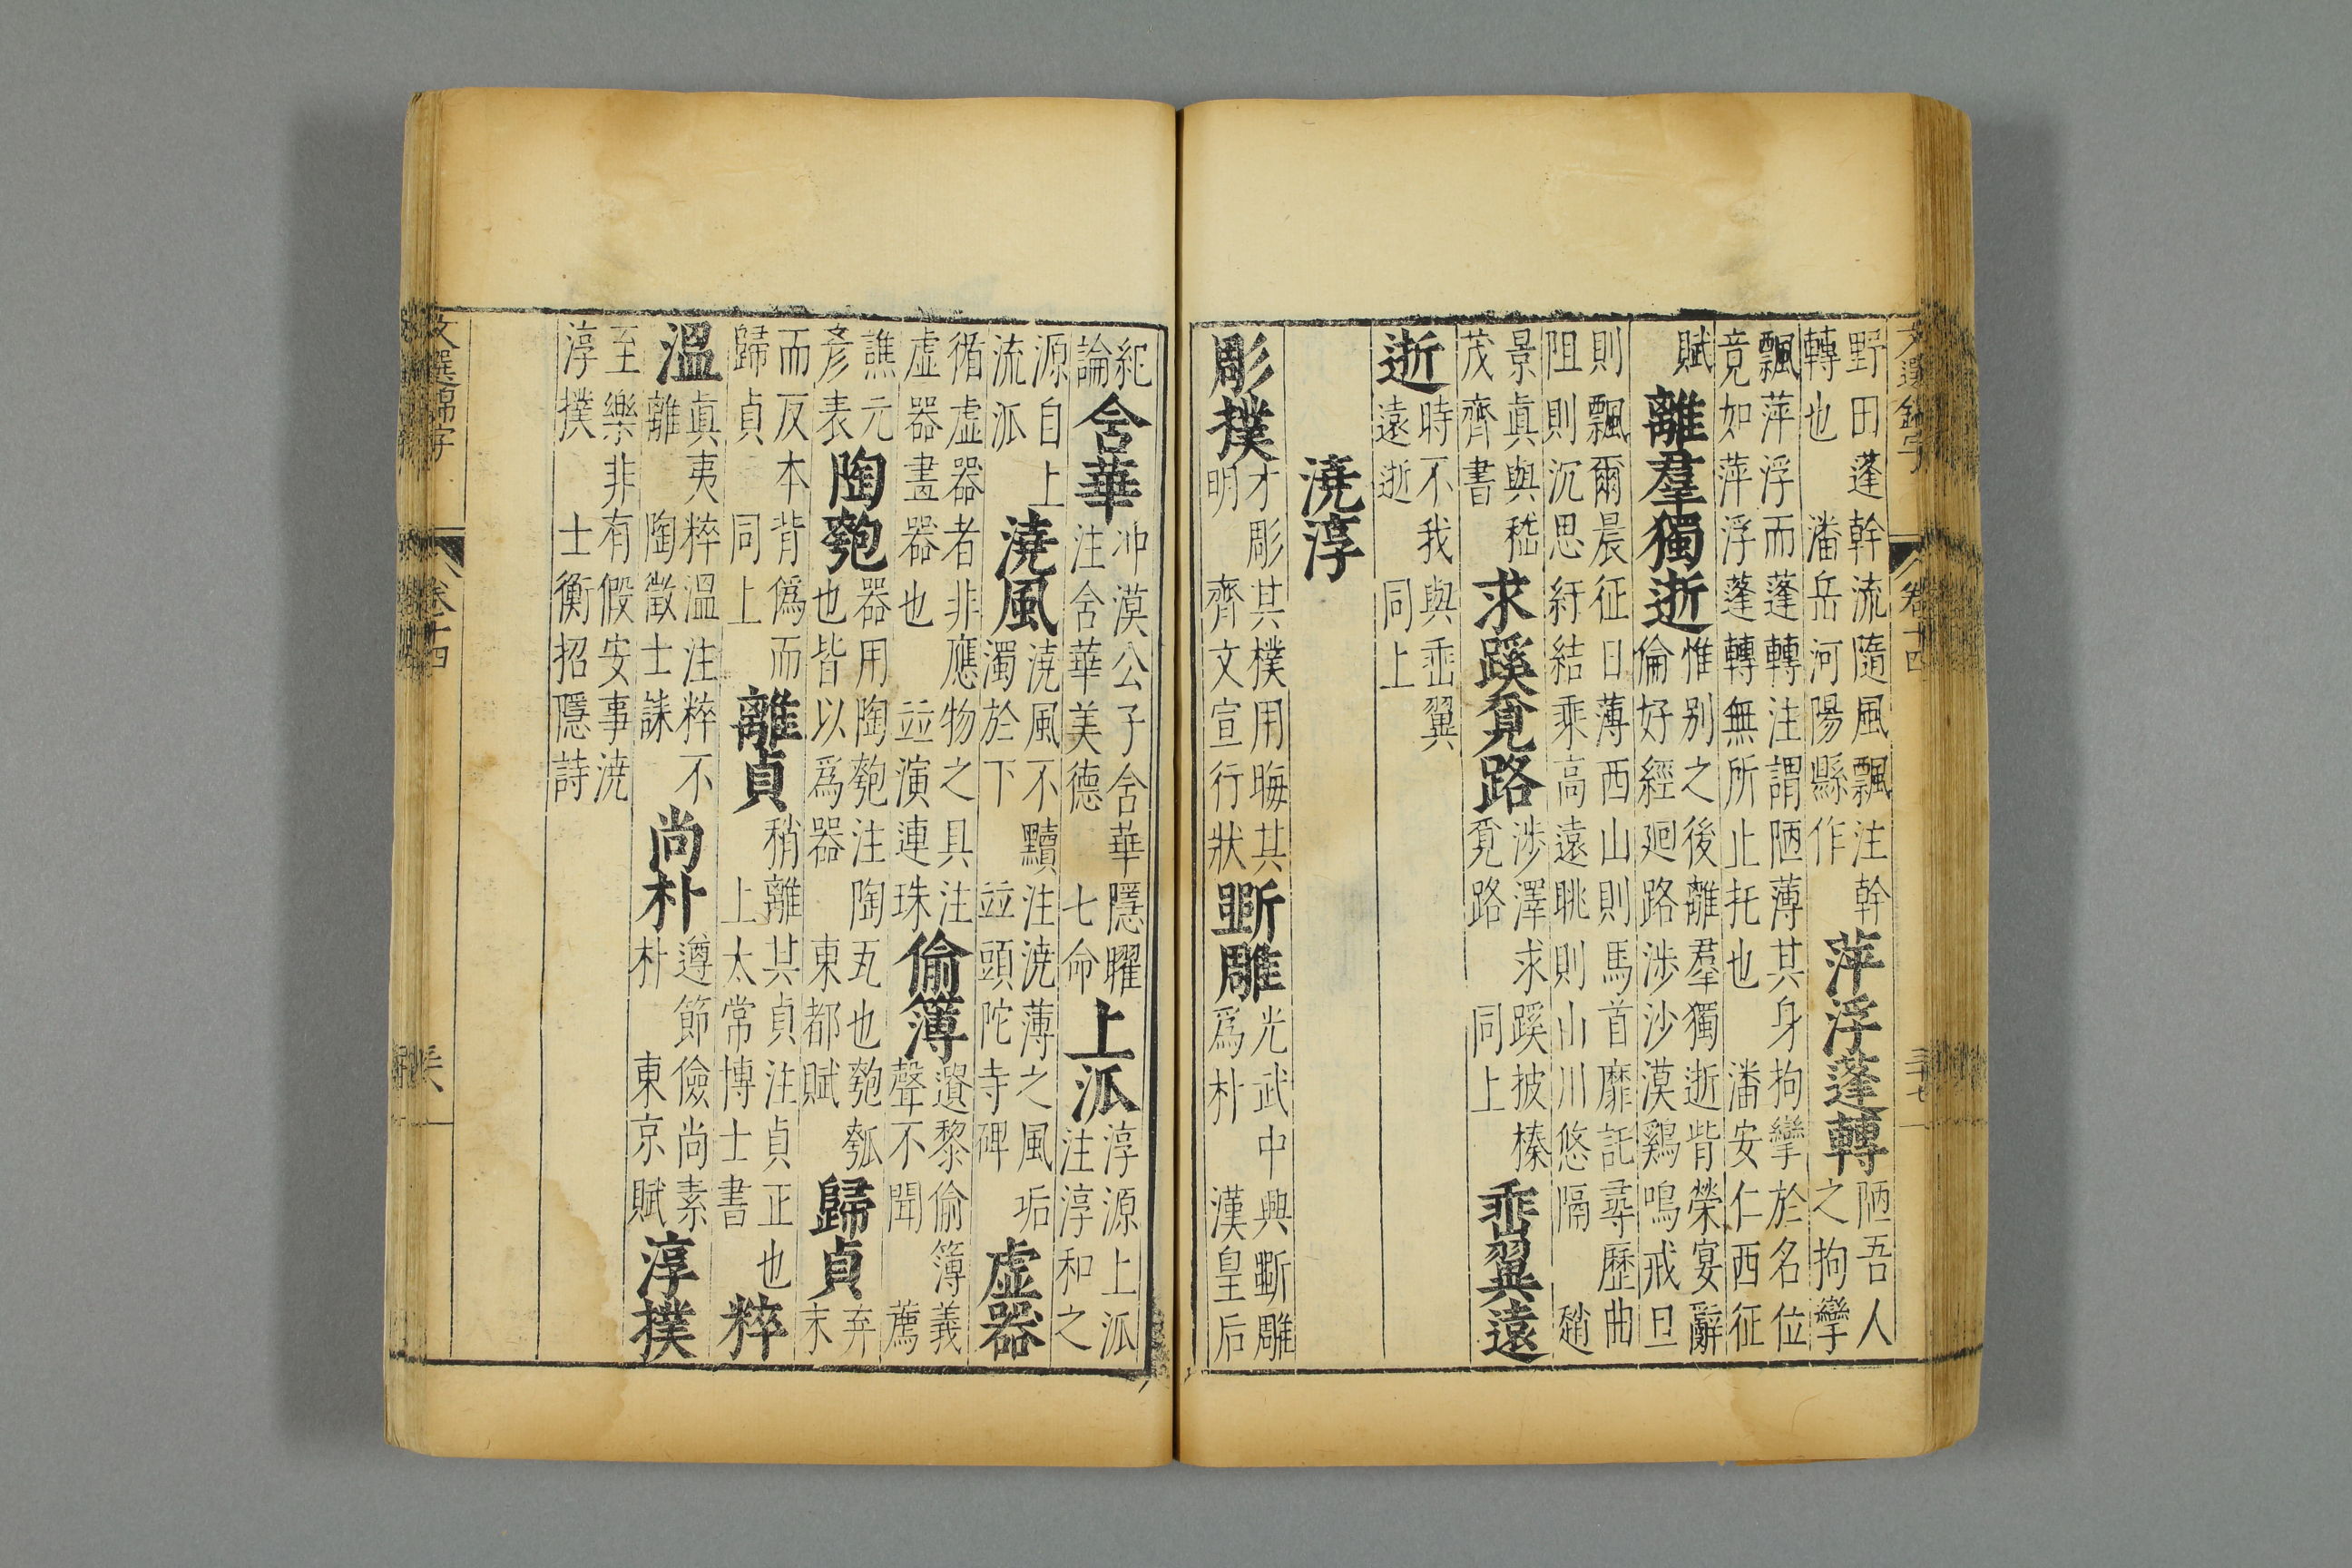 野田蓬幹流隨風飄注幹
轉也 潘岳河陽縣作
萍浮蓬轉
陋吾人
之拘攣
飄萍浮而蓬轉注謂陋薄其身拘攣於名位
竟如萍浮蓬轉無所止托也 潘安仁西征
賦
離羣獨逝
惟别之後離羣獨逝背榮宴辭
倫好經迥路涉沙漠鷄鳴戒旦
則飄爾晨征日薄西山則馬首靡託尋歷曲
阻則沉思紆結乘高遠眺則山川悠隔 趙
景眞與嵇
茂齊書
求蹊覔路
涉澤求蹊披榛
覔路 同上
乖翼遠
逝
時不我與乖翼
遠逝 同上
澆淳
彫撲
才彫其樸用晦其
明 齊文宣行狀
斵雕
光武中興斵雕
爲朴 漢皇后
紀
論
含華
冲漠公子含華隱曜
注含華美德 七命
上泒
淳源上泒
注淳和之
源自上
流泒
澆風
澆風不黷注澆薄之風垢
濁於下 竝頭陀寺碑
虛器
循虛器者非應物之具注
虛器畫器也 竝演連珠
偷簿
遺黎偷簿義
聲不聞 薦
譙元
彥表
陶匏
器用陶匏注陶瓦也匏瓠
也皆以爲器 東都賦
歸貞
弃末
而反本背僞而
歸貞 同上
離貞
稍離其貞注貞正也
上太常博士書
粹
溫
眞夷粹溫注粹不
離 陶徵士誄
尚朴
遵節儉尚素
朴 東京賦
淳撲
至樂非有假安事澆
淳撲 士衡招隱詩
卷十四